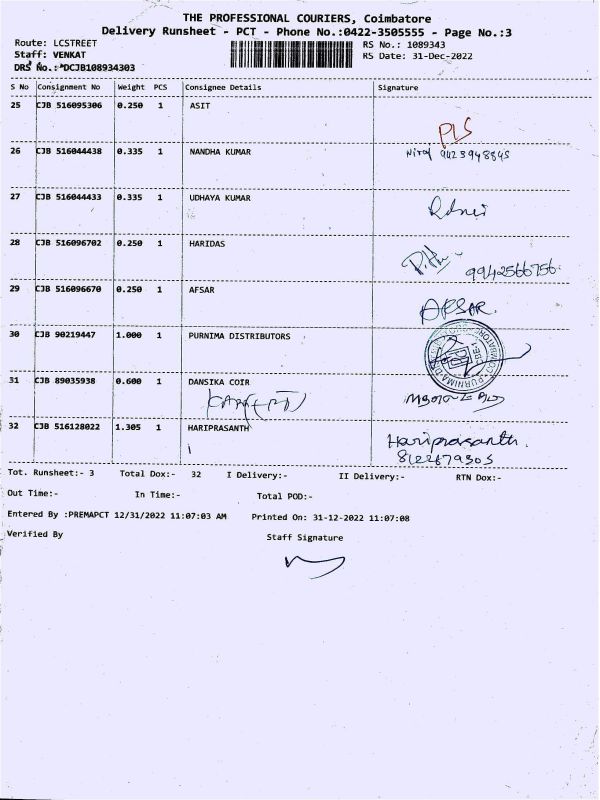 THE PROFESSIONAL COURIERS, Coimbatore
Delivery Runsheet - PCT - Phone No.:0422-3505555 - Page No.:3
Route: LCSTREET RS No.: 1089343
Staff: VENKAT RS Date: 31-Dec-2022
DRS No.:*DCJB108934303
S No Consignment No Weight PCS Consignee Details Signature
25 CJB 516095306 0.250 1 ASIT
PLS
26 CJB 516044438 0.335 1 NANDHA KUMAR 9423948845
27 CJB 516044433 0.335 1 UDHAYA KUMAR
28 CJB 516096702 0.250 1 HARIDAS
9942566756
29 CJB 516096670 0.250 1 AFSAR
AFSAR.
30 CJB 90219447 1.000 1 PURNIMA DISTRIBUTORS
31 CJB 89035938 0.600 1 DANSIKA COIR
32 CJB 516128022 1.305 1 HARIPRASANTH
Hariprasanth.
8122679305
Tot. Runsheet:- 3 Total Dox:- 32 I Delivery:- II Delivery:- RTN Dox:-
Out Time:- In Time:- Total POD:-
Entered By :PREMAPCT 12/31/2022 11:07:03 AM Printed On: 31-12-2022 11:07:08
Verified By Staff Signature